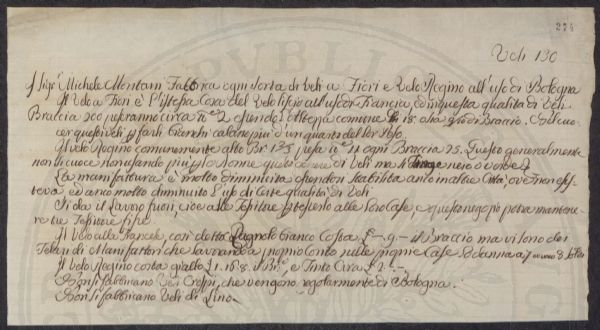 274
Veli 130
Il Sigr Michele Montani Fabbrica ogni sorta di Veli a Fiori e Velo Regino all'uso di Bologna
Il Velo a Fiori è l'istessa Cosa del Velo liscio all'uso di Francia, di questa qualità di Veli
Braccia 200 peseranno circa essendo all'altezza comune di Braccio.
quasi veli p farli bianchi calano più d'un quarti del lor Peso.
Il Velo Regino comunemente alto Br pesa ogni Braccia 25. Questo generalmente
non si cuoce non usando più le Donne questa di Veli ma si Tinge nero o verde
La manifattura è molto diminuita essendosi stabilita anco in altre Città, ove non esis-
teva, ed anco molto diminuito l'uso di Coteste qualità di Veli.
Si dà il lavoro fuori, cioè alle Tessitore alle loro Case, e questo negozio potrà mantene-
re tre Tessitore fisse.
Il Velo alla Francese, così detto Bianco Costa £ -. 9. - il Braccio ma vi sono dei
Telari di Manifattori che lavorando a proprio Conto nelle proprie Case lo danno a 7 ovvero 8 soldi
Il Velo Regino costa giallo £ 1. 15. 8. il Br. e Tinto Circa £ 2. -. -.
Non si fabbricano Veli Crespi, che vengono regolarmente di Bologna.
Non si fabbricano Veli di Lino.